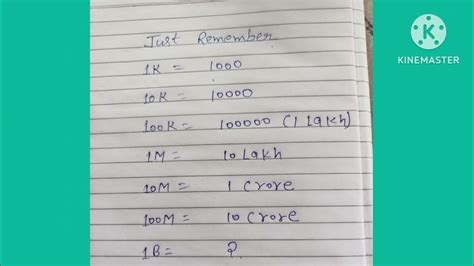 Just Remember
1K = 1000
10K = 10000
100K = 100000 (1 lakh)
1M = 10 Lakh
10M = 1 Crore
100M = 10 Crore
1B = ?
K
KINEMASTER